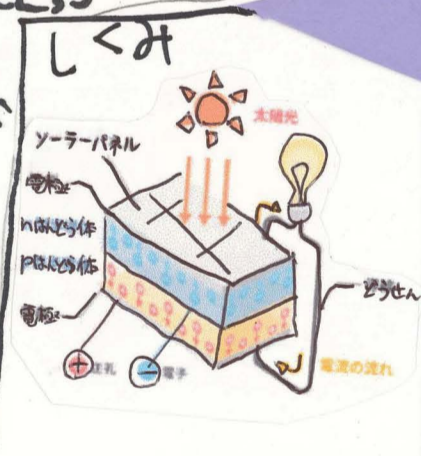 しくみ
太陽光
ソーラーパネル
電極
nはんどう体
Pはんどう体
どうせん
電極
＋ 正孔
− 電子
電流の流れ